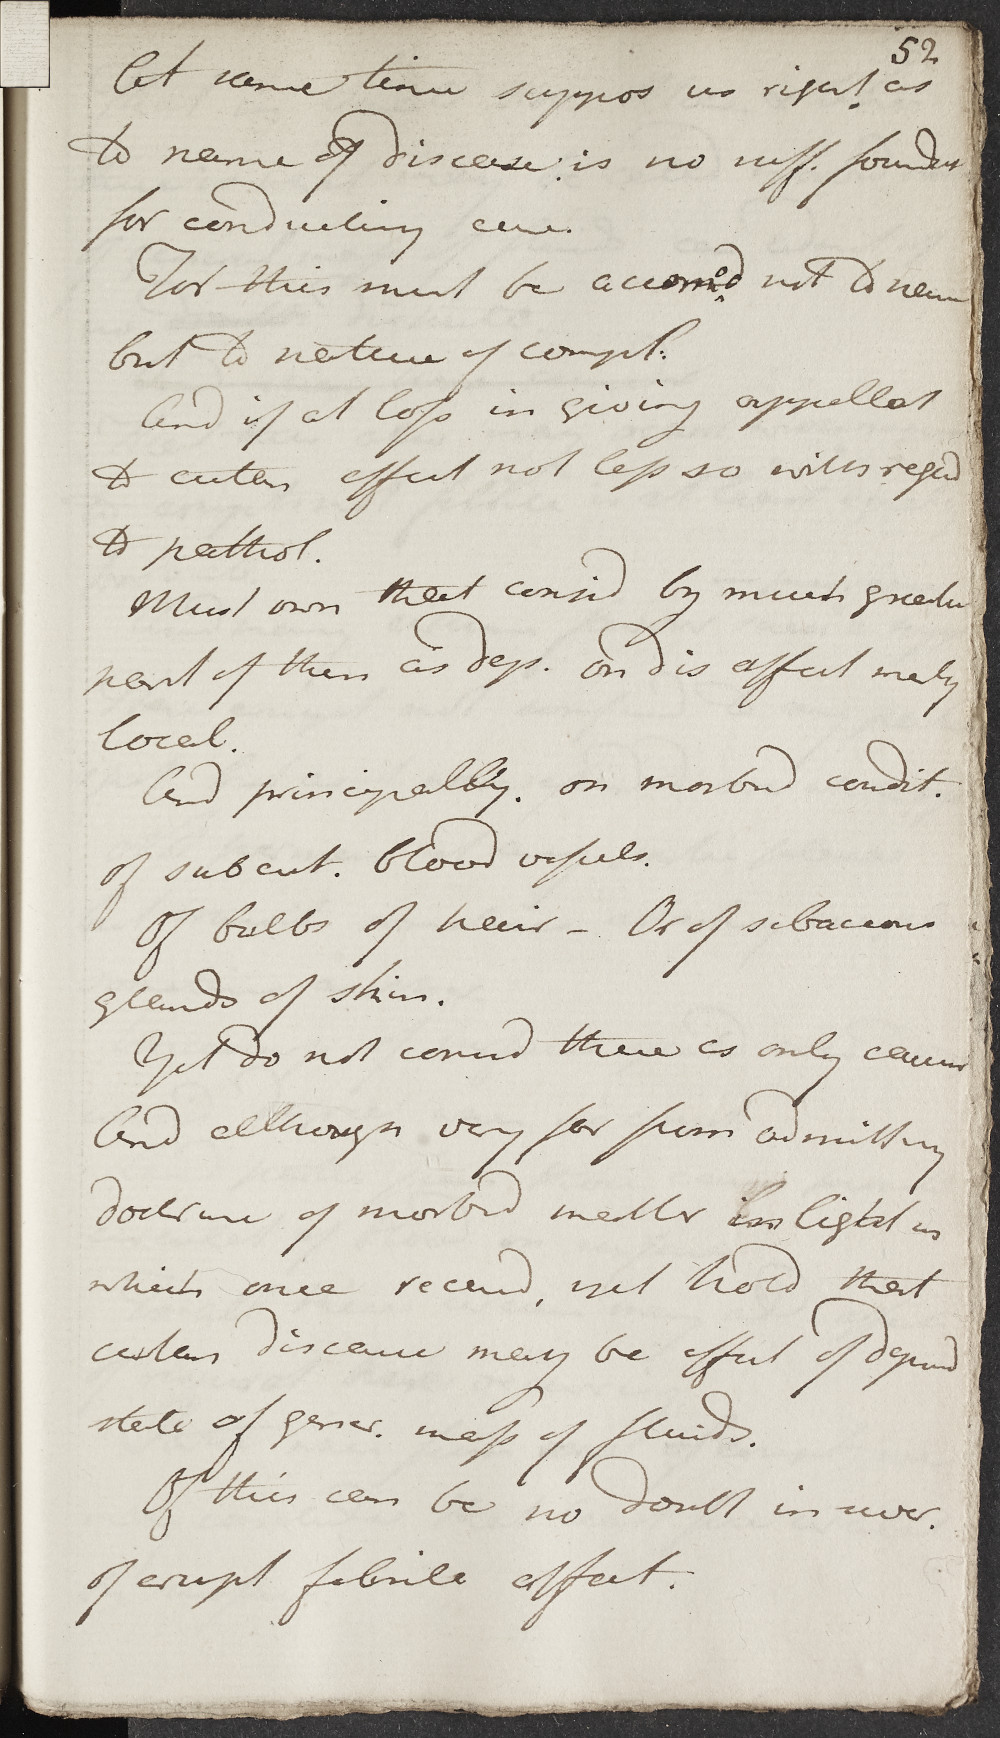 52
At same time suppos us right as
to name of disease, is no suff. foundat
for conducting cure.
For this must be accom̂od not to name
but to nature of compl:
And if at loss in giving appellat
to cutan affect not less so with regard
to pathol.
Must own that consid by much greater
part of them as dep. on dis affect merly
local.
And principally. on morbid condit.
of subcut. blood vessels.
Of bulbs of hair – Or of sebaceous
glands of skin.
Yet do not consid these as only causes
And although very far from admitting
doctrine of morbid matter in light in
which once receivd, yet hold that
cutan disease may be effect of depravd
state of gener. mass of fluids.
Of this can be no doubt in
of erupt febrile affect.